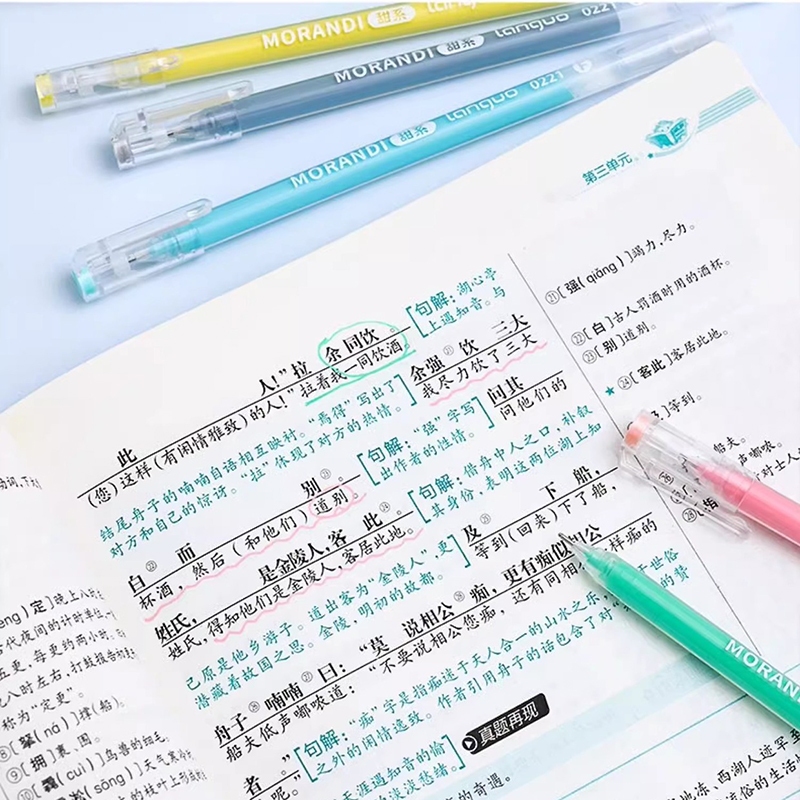 MORANDI 甜系
MORANDI 甜系 Languo 0221
MORANDI 甜系 Languo 0221
第三单元
人!”拉 余 同饮 。
拉着我一同饮酒。
[句解:湖心亭
上遇知音。与
此
(您)这样(有闲情雅致)的人!”
余强㉑ 饮 三大
我尽力饮了三大
结尾舟子的喃喃自语相互映衬。“焉得”写出了
对方和自己的惊讶。“拉”体现了对方的热情。
[句解:“强”字写
出作者的性情。
问其
问他们的
白㉒ 而 别㉓ 。
杯酒,然后(和他们)道别。
[句解:借舟中人之口,补叙
其身份,表明这两位湖上知
姓氏, 是金陵人,客 此㉔ 。
姓氏,得知他们是金陵人,客居此地。
及㉕ 下 船,
等到(回来)下了船,
己原是他乡游子。道出客为“金陵人”,更
潜藏着故国之思。金陵,明初的故都。
舟子㉖ 喃喃㉗ 曰:“莫 说相公㉘ 痴,更有痴似相公
船夫低声嘟哝道:“不要说相公您痴,还有同相公
样痴的
者 。”
呢。”
[句解:“痴”字是指痴迷于天人合一的山水之乐,
世俗
之外的闲情逸致。作者引用舟子的话包含了对“
的赞
天涯遇知音的愉
淡淡愁绪。
真题再现
的奇遇。
㉑[强(qiǎng)]竭力,尽力。
㉒[白]古人罚酒时用的酒杯。
㉓[别]道别。
★ ㉔[客此]客居此地。
]等到。
船夫。
嘟哝。
对士人
MORANDI
定]晚上
代夜间的计时单位
五更,每更约两小时。
八时左右,打鼓报告初更
称为“定更”。
⑧[拏(ná)]撑(船)。
⑨[拥]裹,围。
⑩[毳(cuì)]鸟兽的细毛。
(sōng)]天气寒冷
的枝叶上形成的
冻、西湖人迹罕至
俗的生活情